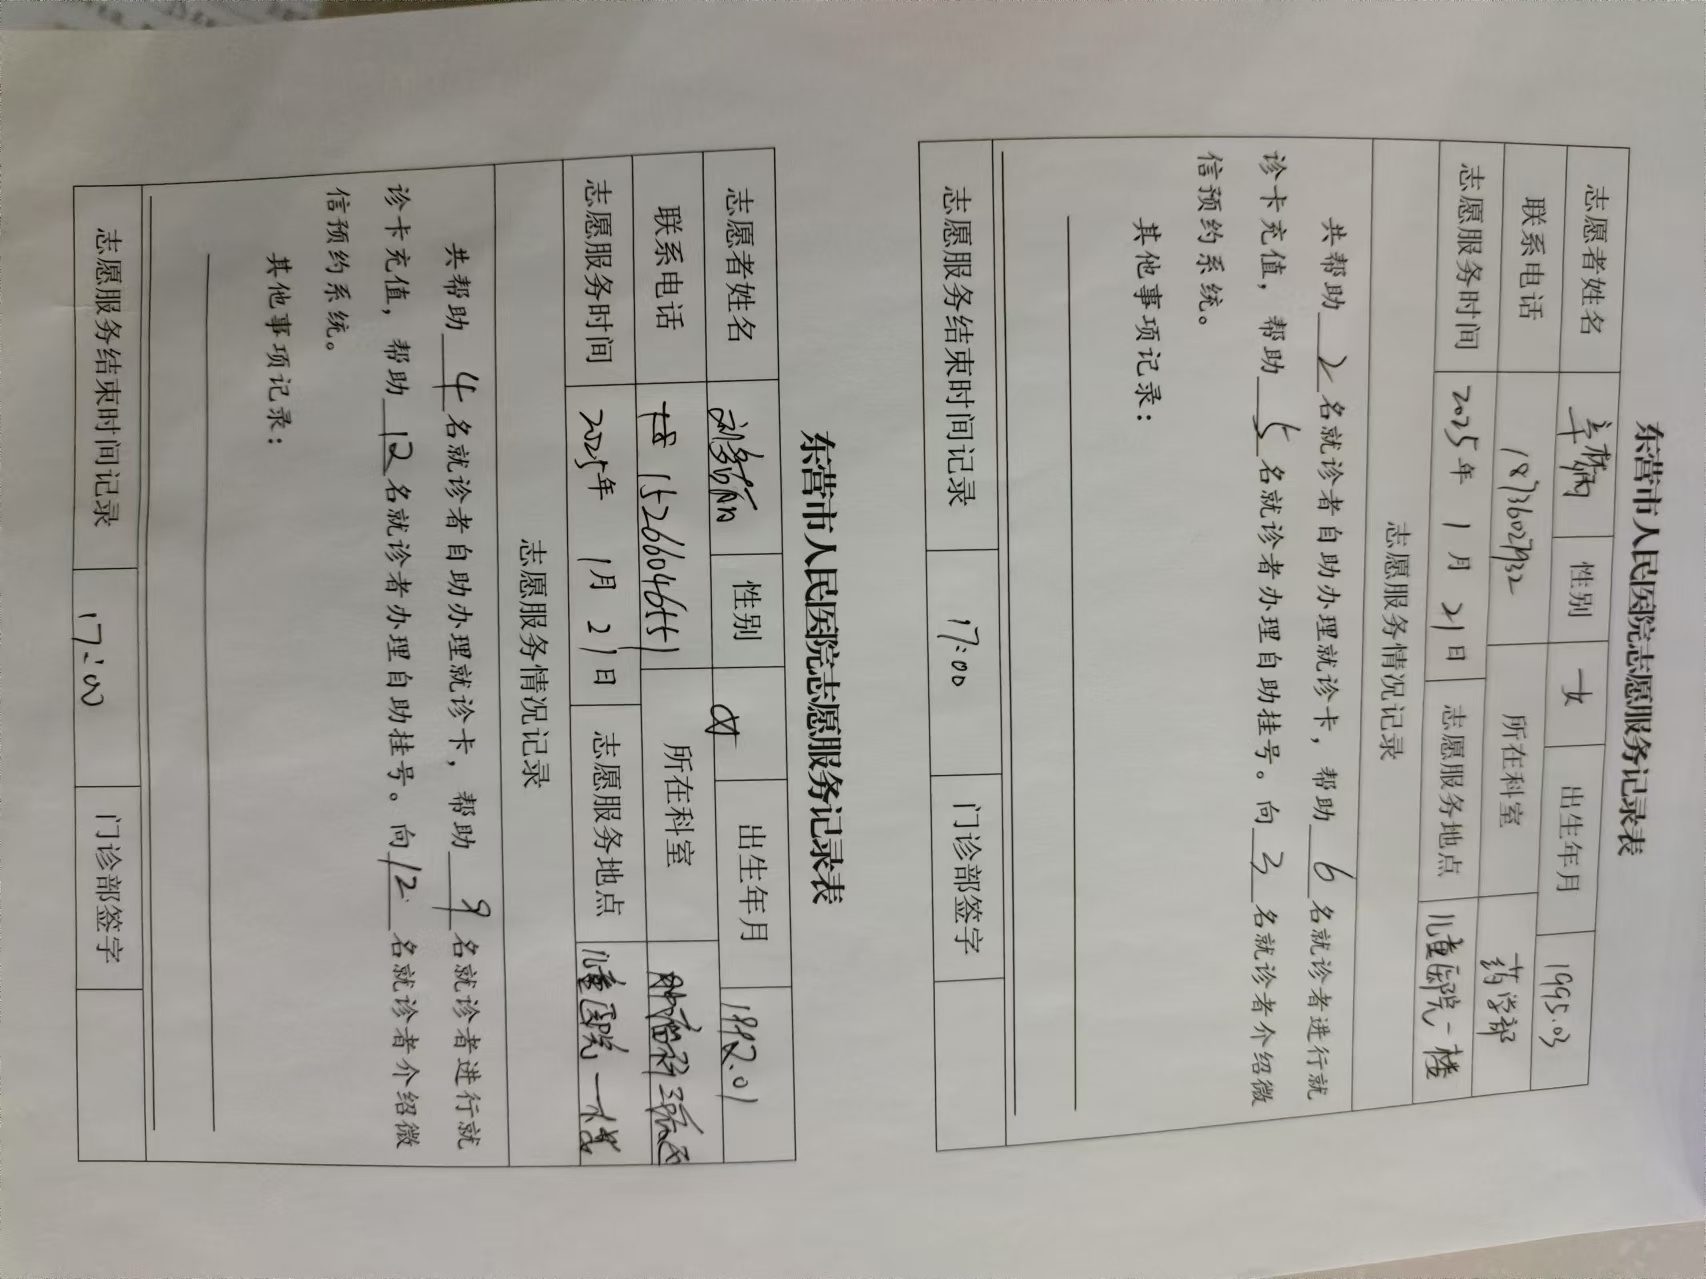 东营市人民医院志愿服务记录表
志愿者姓名 性别 女 出生年月 1995.03
联系电话 18736027932 所在科室 药学部
志愿服务时间 2025年 1月 21日 志愿服务地点 儿童医院一楼
志愿服务情况记录
共帮助 2 名就诊者自助办理就诊卡，帮助 6 名就诊者进行就
诊卡充值，帮助 5 名就诊者办理自助挂号。向 3 名就诊者介绍微
信预约系统。
其他事项记录：
志愿服务结束时间记录 17:00 门诊部签字
东营市人民医院志愿服务记录表
志愿者姓名 性别 女 出生年月 1992.01
联系电话 15266046551 所在科室
志愿服务时间 2025年 1月 21日 志愿服务地点 儿童医院一楼
志愿服务情况记录
共帮助 4 名就诊者自助办理就诊卡，帮助 9 名就诊者进行就
诊卡充值，帮助 12 名就诊者办理自助挂号。向 12 名就诊者介绍微
信预约系统。
其他事项记录：
志愿服务结束时间记录 17:00 门诊部签字